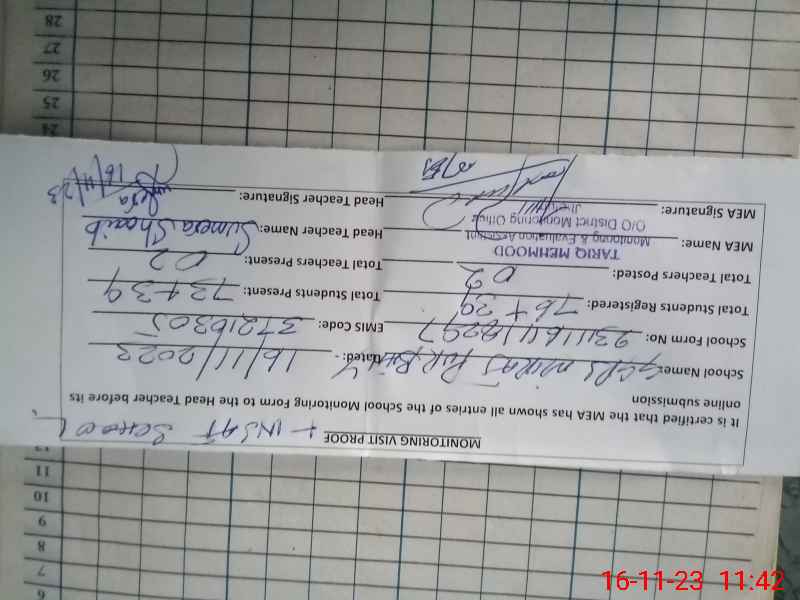 MONITORING VISIT PROOF + INSAF SCHOOL
It is certified that the MEA has shown all entries of the School Monitoring Form to the Head Teacher before its
online submission
School Name: GGPS Dated: - 16/11/2023
School Form No: 231116418297 EMIS Code: 37210305
Total Students Registered: 76+39 Total Students Present: 73+39
Total Teachers Posted: 02 Total Teachers Present: 02
TARIQ MEHMOOD
MEA Name: Monitoring & Evaluation Assistant Head Teacher Name: Sumera Shoaib
O/O District Monitoring Officer
MEA Signature: Head Teacher Signature: Sumera
16/11/23
28
27
26
25
24
12
11
10
9
8
7
6
16-11-23 11:42